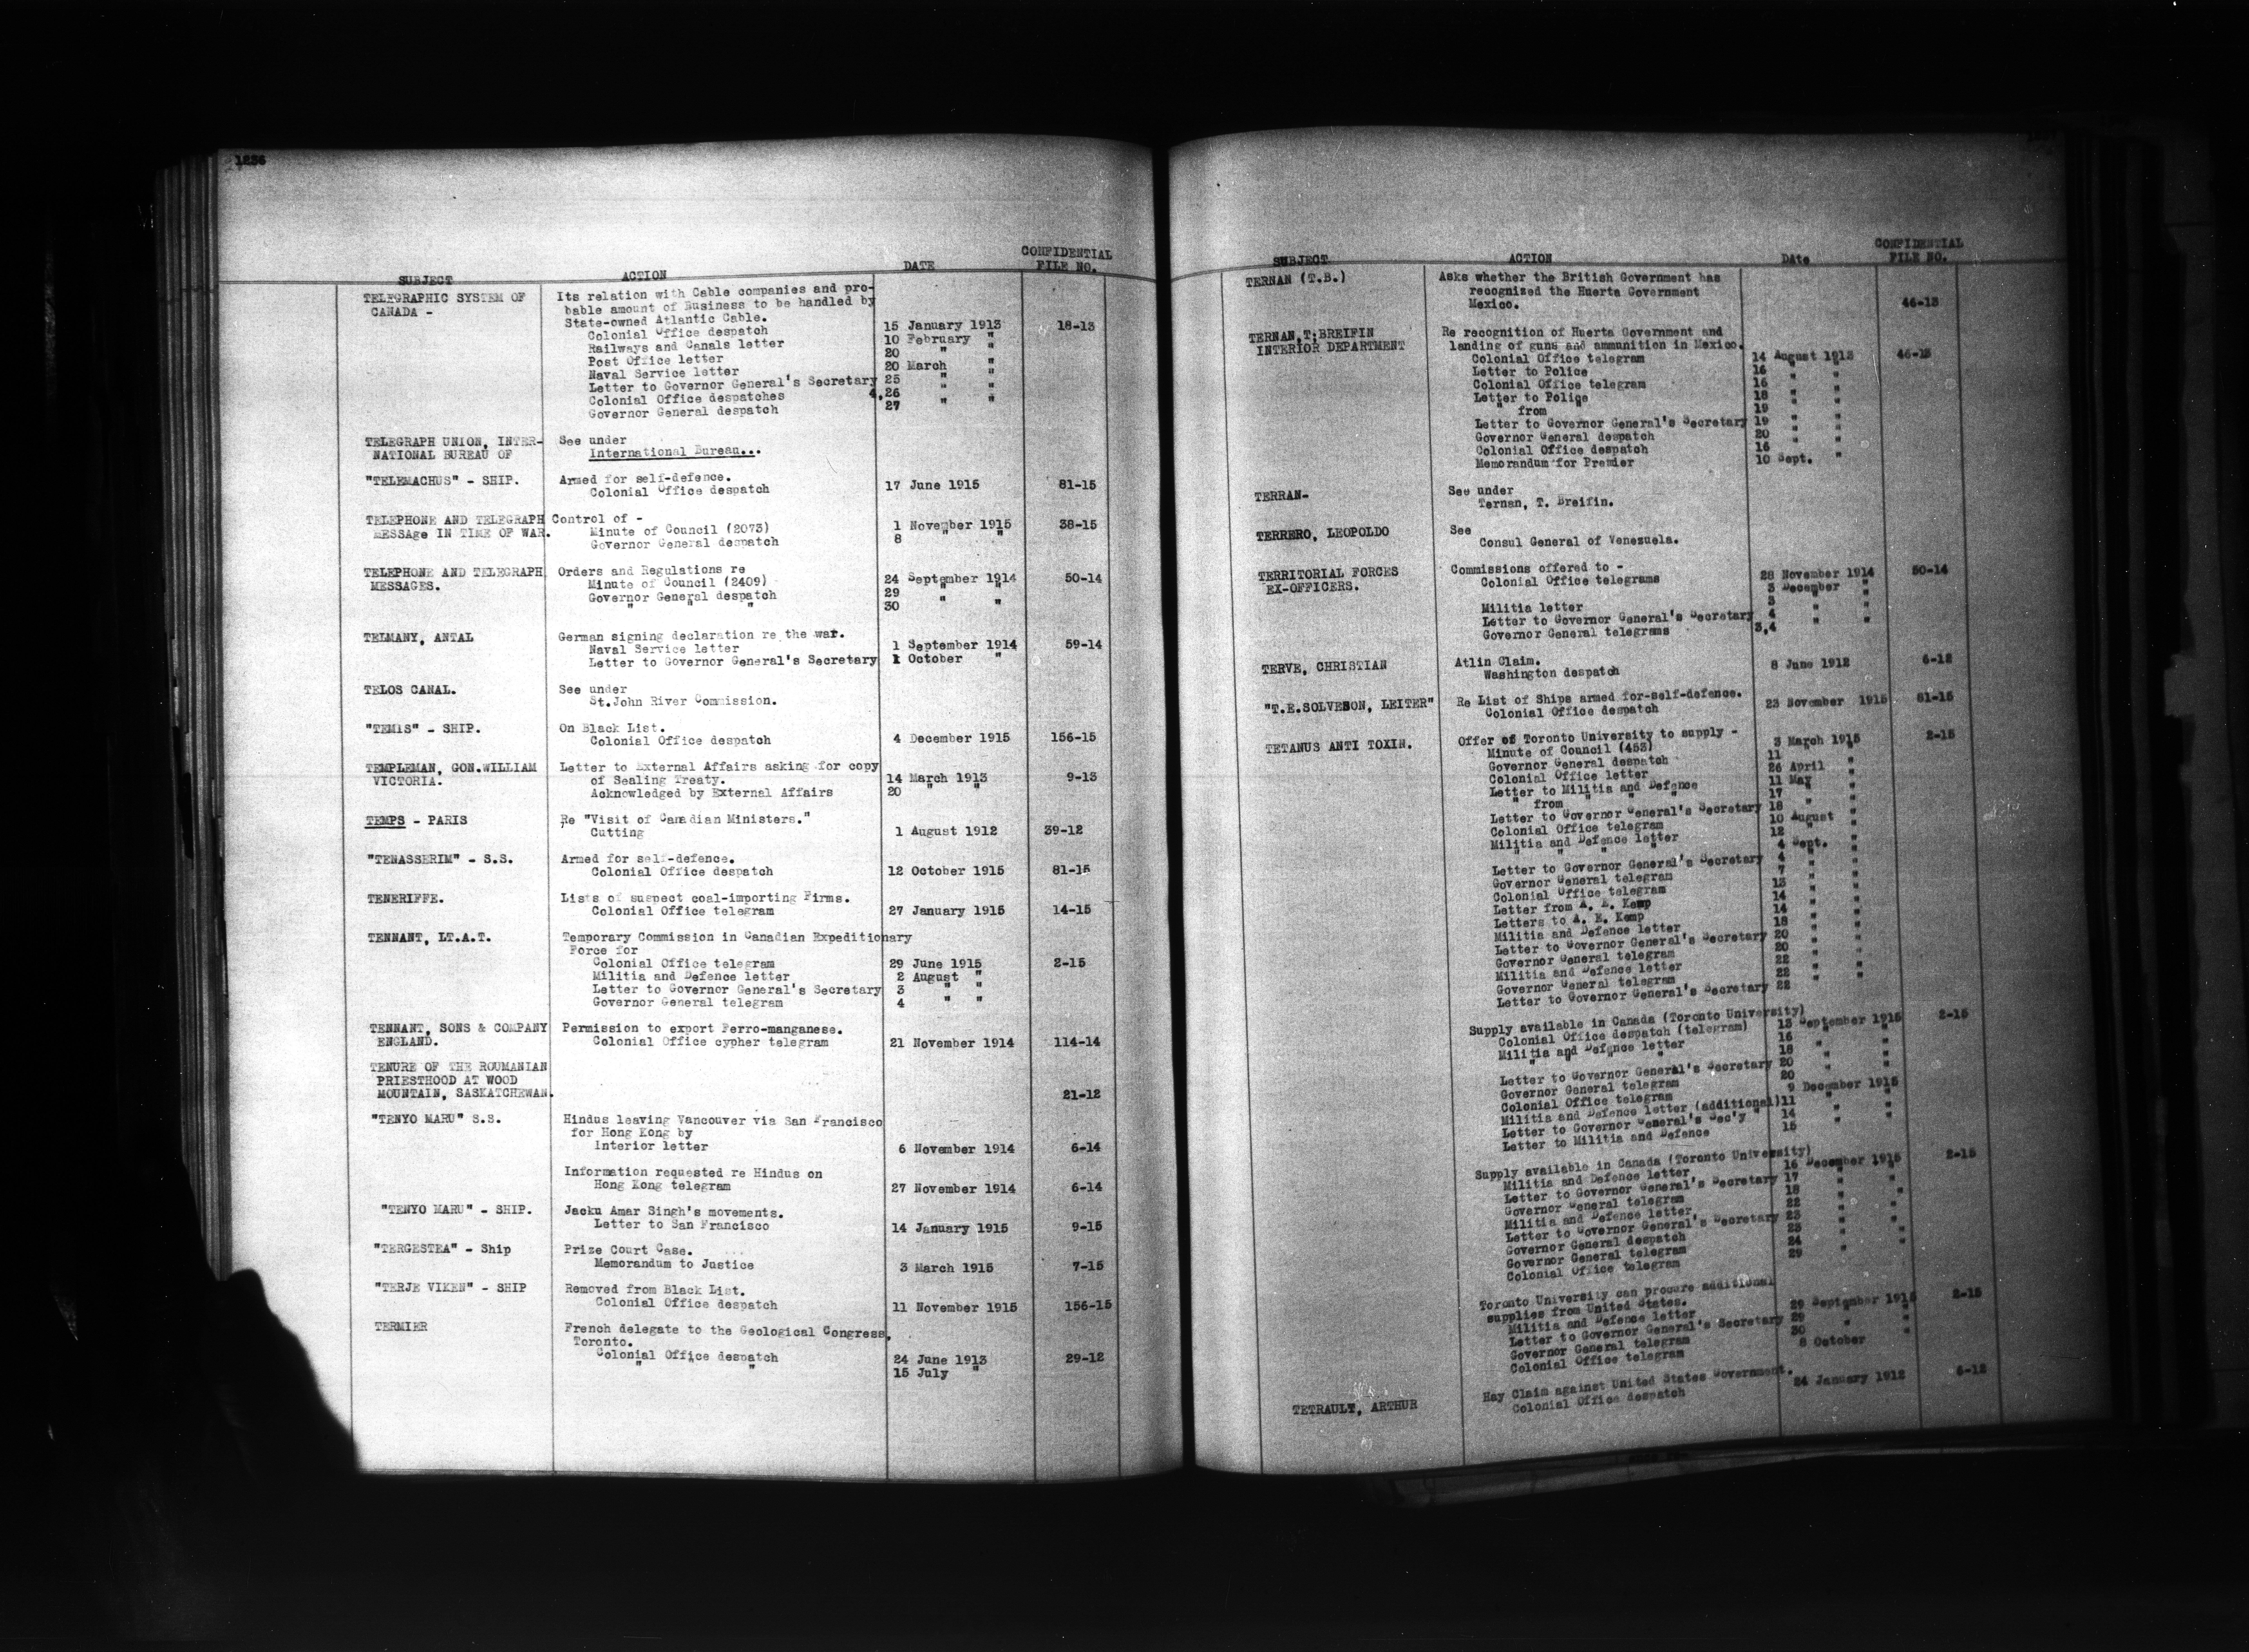 1236
SUBJECT ACTION DATE CONFIDENTIAL FILE NO.
TELEGRAPHIC SYSTEM OF Its relation with Cable companies and pro-
CANADA - bable amount of Business to be handled by
State-owned Atlantic Cable.
Colonial Office despatch 15 January 1913 18-13
Railways and Canals letter 10 February "
Post Office letter 20 " "
Naval Service letter 20 March "
Letter to Governor General's Secretary 25 " "
Colonial Office despatches 4,26 " "
Governor General despatch 27 " "
TELEGRAPH UNION, INTER- See under
NATIONAL BUREAU OF International Bureau...
"TELEMACHUS" - SHIP. Armed for self-defence.
Colonial Office despatch 17 June 1915 81-15
TELEPHONE AND TELEGRAPH Control of -
MESSAge IN TIME OF WAR. Minute of Council (2073) 1 November 1915 38-15
Governor General despatch 8 " "
TELEPHONE AND TELEGRAPH Orders and Regulations re
MESSAGES. Minute of Council (2409) 24 September 1914 50-14
Governor General despatch 29 "
" " " 30 " "
TELMANY, ANTAL German signing declaration re the war.
Naval Service letter 1 September 1914 59-14
Letter to Governor General's Secretary 1 October "
TELOS CANAL. See under
St.John River Commission.
"TEMIS" - SHIP. On Black List.
Colonial Office despatch 4 December 1915 156-15
TEMPLEMAN, GON.WILLIAM Letter to External Affairs asking for copy
VICTORIA. of Sealing Treaty. 14 March 1913 9-13
Acknowledged by External Affairs 20 " "
TEMPS - PARIS Re "Visit of Canadian Ministers."
Cutting 1 August 1912 39-12
"TENASSERIM" - S.S. Armed for self-defence.
Colonial Office despatch 12 October 1915 81-15
TENERIFFE. Lists of suspect coal-importing Firms.
Colonial Office telegram 27 January 1915 14-15
TENNANT, LT.A.T. Temporary Commission in Canadian Expeditionary
Force for
Colonial Office telegram 29 June 1915 2-15
Militia and Defence letter 2 August "
Letter to Governor General's Secretary 3 " "
Governor General telegram 4 " "
TENNANT, SONS & COMPANY Permission to export Ferro-manganese.
ENGLAND. Colonial Office cypher telegram 21 November 1914 114-14
TENURE OF THE ROUMANIAN
PRIESTHOOD AT WOOD
MOUNTAIN, SASKATCHEWAN. 21-12
"TENYO MARU" S.S. Hindus leaving Vancouver via San Francisco
for Hong Kong by
Interior letter 6 November 1914 6-14
Information requested re Hindus on
Hong Kong telegram 27 November 1914 6-14
"TENYO MARU" - SHIP. Jacku Amar Singh's movements.
Letter to San Francisco 14 January 1915 9-15
"TERGESTEA" - Ship Prize Court Case.
Memorandum to Justice 3 March 1915 7-15
"TERJE VIKEN" - SHIP Removed from Black List.
Colonial Office despatch 11 November 1915 156-15
TERMIER French delegate to the Geological Congress,
Toronto.
Colonial Office despatch 24 June 1913 29-12
" " " 15 July "
SUBJECT ACTION Date CONFIDENTIAL FILE NO.
TERNAN (T.B.) Asks whether the British Government has
recognized the Huerta Government
Mexico. 46-13
TERNAN,T.BREIFIN Re recognition of Huerta Government and
INTERIOR DEPARTMENT landing of guns and ammunition in Mexico.
Colonial Office telegram 14 August 1913 46-13
Letter to Police 16 " "
Colonial Office telegram 16 " "
Letter to Police 18 " "
" from " 19 " "
Letter to Governor General's Secretary 19 " "
Governor General despatch 20 " "
Colonial Office despatch 16 " "
Memorandum for Premier 10 Sept. "
TERRAN- See under
Ternan, T. Breifin.
TERRERO, LEOPOLDO See
Consul General of Venezuela.
TERRITORIAL FORCES Commissions offered to -
EX-OFFICERS. Colonial Office telegrams 28 November 1914 50-14
3 December "
Militia letter 3 " "
Letter to Governor General's Secretary 4 " "
Governor General telegrams 3,4 " "
TERVE, CHRISTIAN Atlin Claim.
Washington despatch 8 June 1912 6-12
"T.E.SOLVESON, LEITER" Re List of Ships armed for-self-defence.
Colonial Office despatch 23 November 1915 81-15
TETANUS ANTI TOXIN. Offer of Toronto University to supply -
Minute of Council (453) 3 March 1915 2-15
Governor General despatch 11 " "
Colonial Office letter 26 April "
Letter to Militia and Defence 11 May "
" from " " " 17 " "
Letter to Governor General's Secretary 18 " "
Colonial Office telegram 10 August "
Militia and Defence letter 12 " "
" " " " 4 Sept. "
Letter to Governor General's Secretary 4 " "
Governor General telegram 7 " "
Colonial Office telegram 13 " "
Letter from A. E. Kemp 14 " "
Letters to A. E. Kemp 14 " "
Militia and Defence letter 18 " "
Letter to Governor General's Secretary 20 " "
Governor General telegram 20 " "
Militia and Defence letter 22 " "
Governor General telegram 22 " "
Letter to Governor General's Secretary 22 " "
Supply available in Canada (Toronto University)
Colonial Office despatch (telegram) 13 September 1915 2-15
Militia and Defence letter 16 " "
" " " " 18 " "
Letter to Governor General's Secretary 20 " "
Governor General telegram 20 " "
Colonial Office telegram 9 December 1915
Militia and Defence letter (additional) 11 " "
Letter to Governor General's Sec'y " 14 " "
Letter to Militia and Defence 15 " "
Supply available in Canada (Toronto University)
Militia and Defence letter 16 December 1915 2-15
Letter to Governor General's Secretary 17 " "
Governor General telegram 18 " "
Militia and Defence letter, 22 " "
Letter to Governor General's Secretary 23 " "
Governor General despatch 23 " "
Governor General telegram 24 " "
Colonial Office telegram 29 " "
Toronto University can procure additional
supplies from United States.
Militia and Defence letter 29 September 1915 2-15
Letter to Governor General's Secretary 29 " "
Governor General telegram 30 " "
Colonial Office telegram 8 October
TETRAULT, ARTHUR Hay Claim against United States Government.
Colonial Office despatch 24 January 1912 6-12